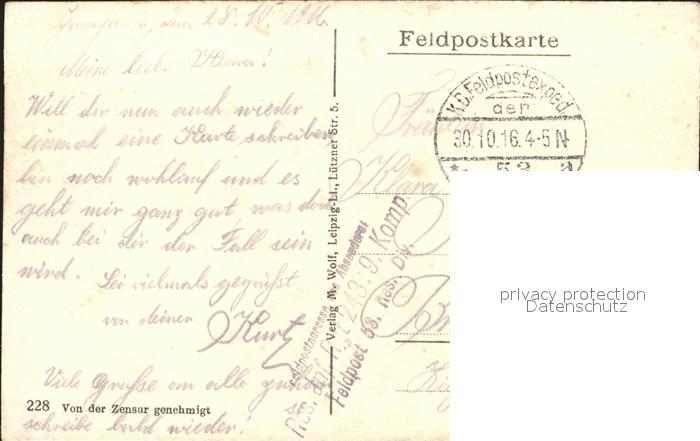 den 28.10.1916
Meine liebe Klara!
Will dir nun auch wieder
einmal eine Karte schreiben
bin noch wohlauf und es
geht mir ganz gut, was dan
auch bei dir der Fall sein
wird. Sei vielmals gegrüsst
von deinem
Kurt
Viele Grüsse an alle
schreibe bald wieder!
228 Von der Zensur genehmigt
Verlag M. Wolf, Leipzig-Li., Lützner Str. 5.
Feldpostkarte
K.B. Feldpostexped.
der
30.10.16. 4-5 N
* 53 a
Fräulein
Klara
Feldpostadresse des Absenders:
Res. Inf. R. 243. 9. Komp.
Feldpost 53. Res. Div.
privacy protection
Datenschutz